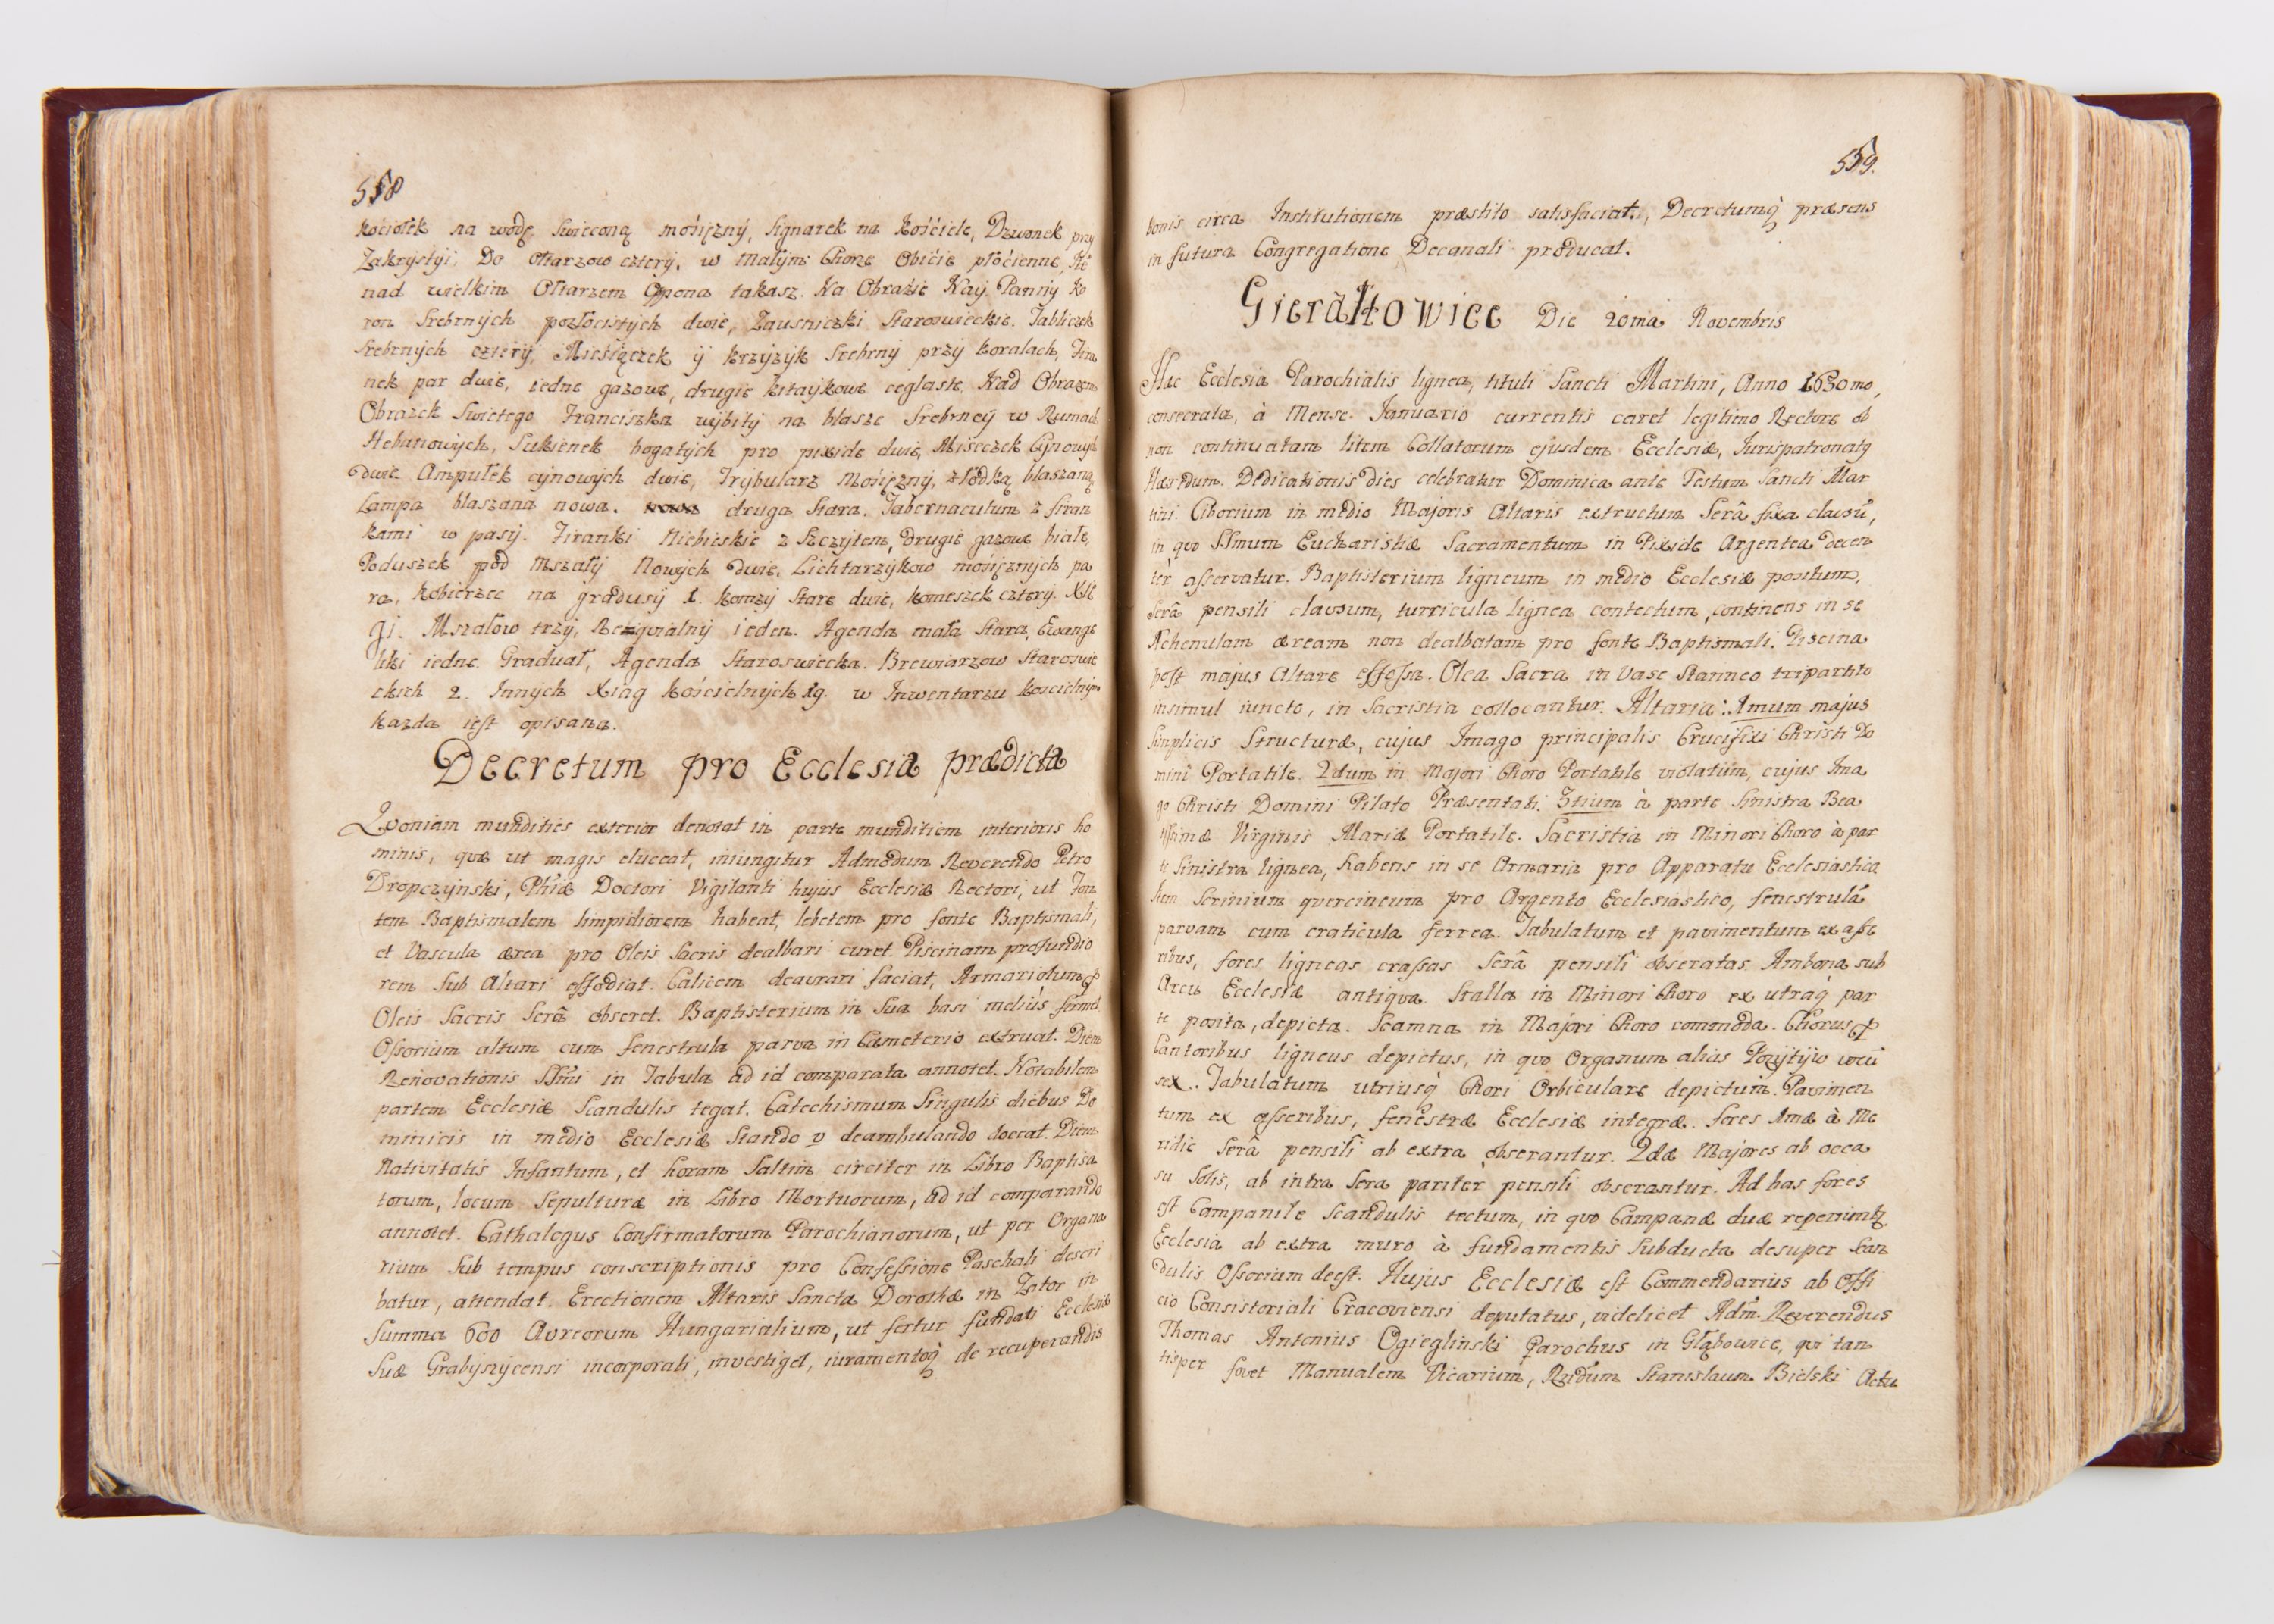 558
kociołek na wodę swięconą mosiężny, Sygnarek na Kościele, Dzwonek przy
Zakrystyi, Do ołtarzow cztery. w Małym Chorze Obicie płocienne,
nad wielkim Ołtarzem Opona takasz. Na Obrazie Nay. Panny Ko
ron Srebrnych pozłocistych dwie, Zauszniczki Staroswieckie. Tabliczek
Srebrnych cztery, Miesiączek y krzyżyk Srebrny przy koralach, Fira
nek par dwie, iedne gazowe, drugie kitaykowe ceglaste, Nad Obrazem
Obrazek Swietego Franciszka wybity na blasze Srebrney w Ramach
Hebanowych, Sukienek bogatych pro pixide dwie, Miseczek Cynowych
dwie Ampułek cynowych dwie, Trybularz Mosiężny, z łodką blaszaną
Lampa blaszana nowa. druga Stara. Tabernaculum z firan
kami w pasy. Firanki Niebieskie z Szczytem, drugie gazowe białe,
Poduszek pod Mszały Nowych dwie. Lichtarzykow mosiężnych pa
ra, Kobierzec na gradusy 1. Komzy Stare dwie, komeszek cztery. Xię
gi. Mszałow trzy, Requialny ieden. Agenda mała Stara, Ewange
liki iedne. Graduał, Agenda Staroswiecka. Brewiarzow Staroswie
ckich 2. Innych Xiąg Kościelnych 19. w Inwentarzu Koscielnym
kazda iest opisana.
Decretum pro Ecclesia prædicta
Quoniam mundities exterior denotat in parte munditiem interioris ho
minis, quæ ut magis eluceat, iniungitur Admodum Reverendo Petro
Dropczynski, Phiæ Doctori Vigilanti hujus Ecclesiæ Rectori, ut Fon
tem Baptismalem limpidiorem habeat, lebetem pro fonte Baptismali,
et Vascula ærea pro Oleis Sacris dealbari curet. Piscinam profundio
rem Sub Altari effodiat. Calicem deaurari faciat, Armariolum p
Oleis Sacris Serâ obseret. Baptisterium in Sua basi melius firmet
Ossorium altum cum fenestrula parva in Cæmeterio extruat. Diem
Renovationis SSmi in Tabula ad id comparata annotet. Notabilem
partem Ecclesiæ Scandulis tegat. Catechismum Singulis diebus Do
minicis in medio Ecclesiæ Stando v deambulando doceat. Diem
Nativitatis Infantum, et horam Saltim circiter in Libro Baptisa
torum, locum Sepulturæ in Libro Mortuorum, ad id comparando
annotet. Cathalogus Confirmatorum Parochianorum, ut per Organa
rium Sub tempus conscriptionis pro Confessione Paschali descri
batur, attendat. Erectionem Altaris Sanctæ Dorothæ in Zator in
Summa 600 Aureorum Hungarialium, ut fertur fundati Ecclesiæ
Suæ Grabyszycensi incorporati, investiget, iuramentoq de recuperandis
559.
bonis circa Institutionem præstito satisfaciat, Decretumq præsens
in futura Congregatione Decanali producat.
Gierałtowice Die 20ma Novembris
Hæc Ecclesia Parochialis lignea, tituli Sancti Martini, Anno 1630mo,
consecrata, à Mense Januario currentis caret legitimo Rectore ob
non continuatam litem Collatorum ejusdem Ecclesiæ, Jurispatronatq
Hæredum. Dedicationis dies celebratur Dominica ante Festum Sancti Mar
tini. Ciborium in medio Majoris Altaris extructum Serâ fixa clausū,
in quo SSmum Eucharistiæ Sacramentum in Pixide Argentea decen
ter asservatur. Baptisterium ligneum in medio Ecclesiæ positum,
Serâ pensili clausum, turricula lignea contectum, continens in se
Achenulam æream non dealbatam pro fonte Baptismali. Piscina
post majus Altare effossa. Olea Sacra in Vase Stanneo tripartito
insimul iuncto, in Sacristia collocantur. Altaria: 1mum majus
Simplicis Structuræ, cujus Imago principalis Crucifixi Christi Do
mini Portatile. 2dum in Majori Choro Portatile violatum, cujus Ima
go Christi Domini Pilato Præsentati. 3tium à parte Sinistra Bea
tissimæ Virginis Mariæ Portatile. Sacristia in Minori Choro à par
te Sinistra lignea, habens in se Armaria pro Apparatu Ecclesiastico
Item Scrinium quercineum pro Argento Ecclesiastico, fenestrulâ
parvam cum craticula ferrea. Tabulatum et pavimentum ex asse
ribus, fores ligneas crassas Serâ pensili obseratas. Ambona sub
Arcu Ecclesiæ antiqva. Stalla in Minori Choro ex utraq par
te posita, depicta. Scamna in Majori Choro commoda. Chorus p
Cantoribus ligneus depictus, in quo Organum alias Pozytyw vocū
sex. Tabulatum utriusq Chori Orbiculare depictum. Pavimen
tum ex asseribus, fenestræ Ecclesiæ integræ. fores 1mæ à Me
ridie Serâ pensili ab extra obserantur. 2dæ Majores ab occa
su Solis, ab intra Sera pariter pensili obserantur. Ad has fores
est Campanile Scandulis tectum, in quo Campanæ duæ reperiuntz.
Ecclesia ab extra muro à fundamentis Subducta desuper Scan
dulis. Ossorium deest. Hujus Ecclesiæ est Commendarius ab Offi
cio Consistoriali Cracoviensi deputatus, videlicet Adm. Reverendus
Thomas Antonius Ogieglinski Parochus in Głębowice, qui tan
tisper fovet Manualem Vicarium, Rndum Stanislaum Bielski Actu